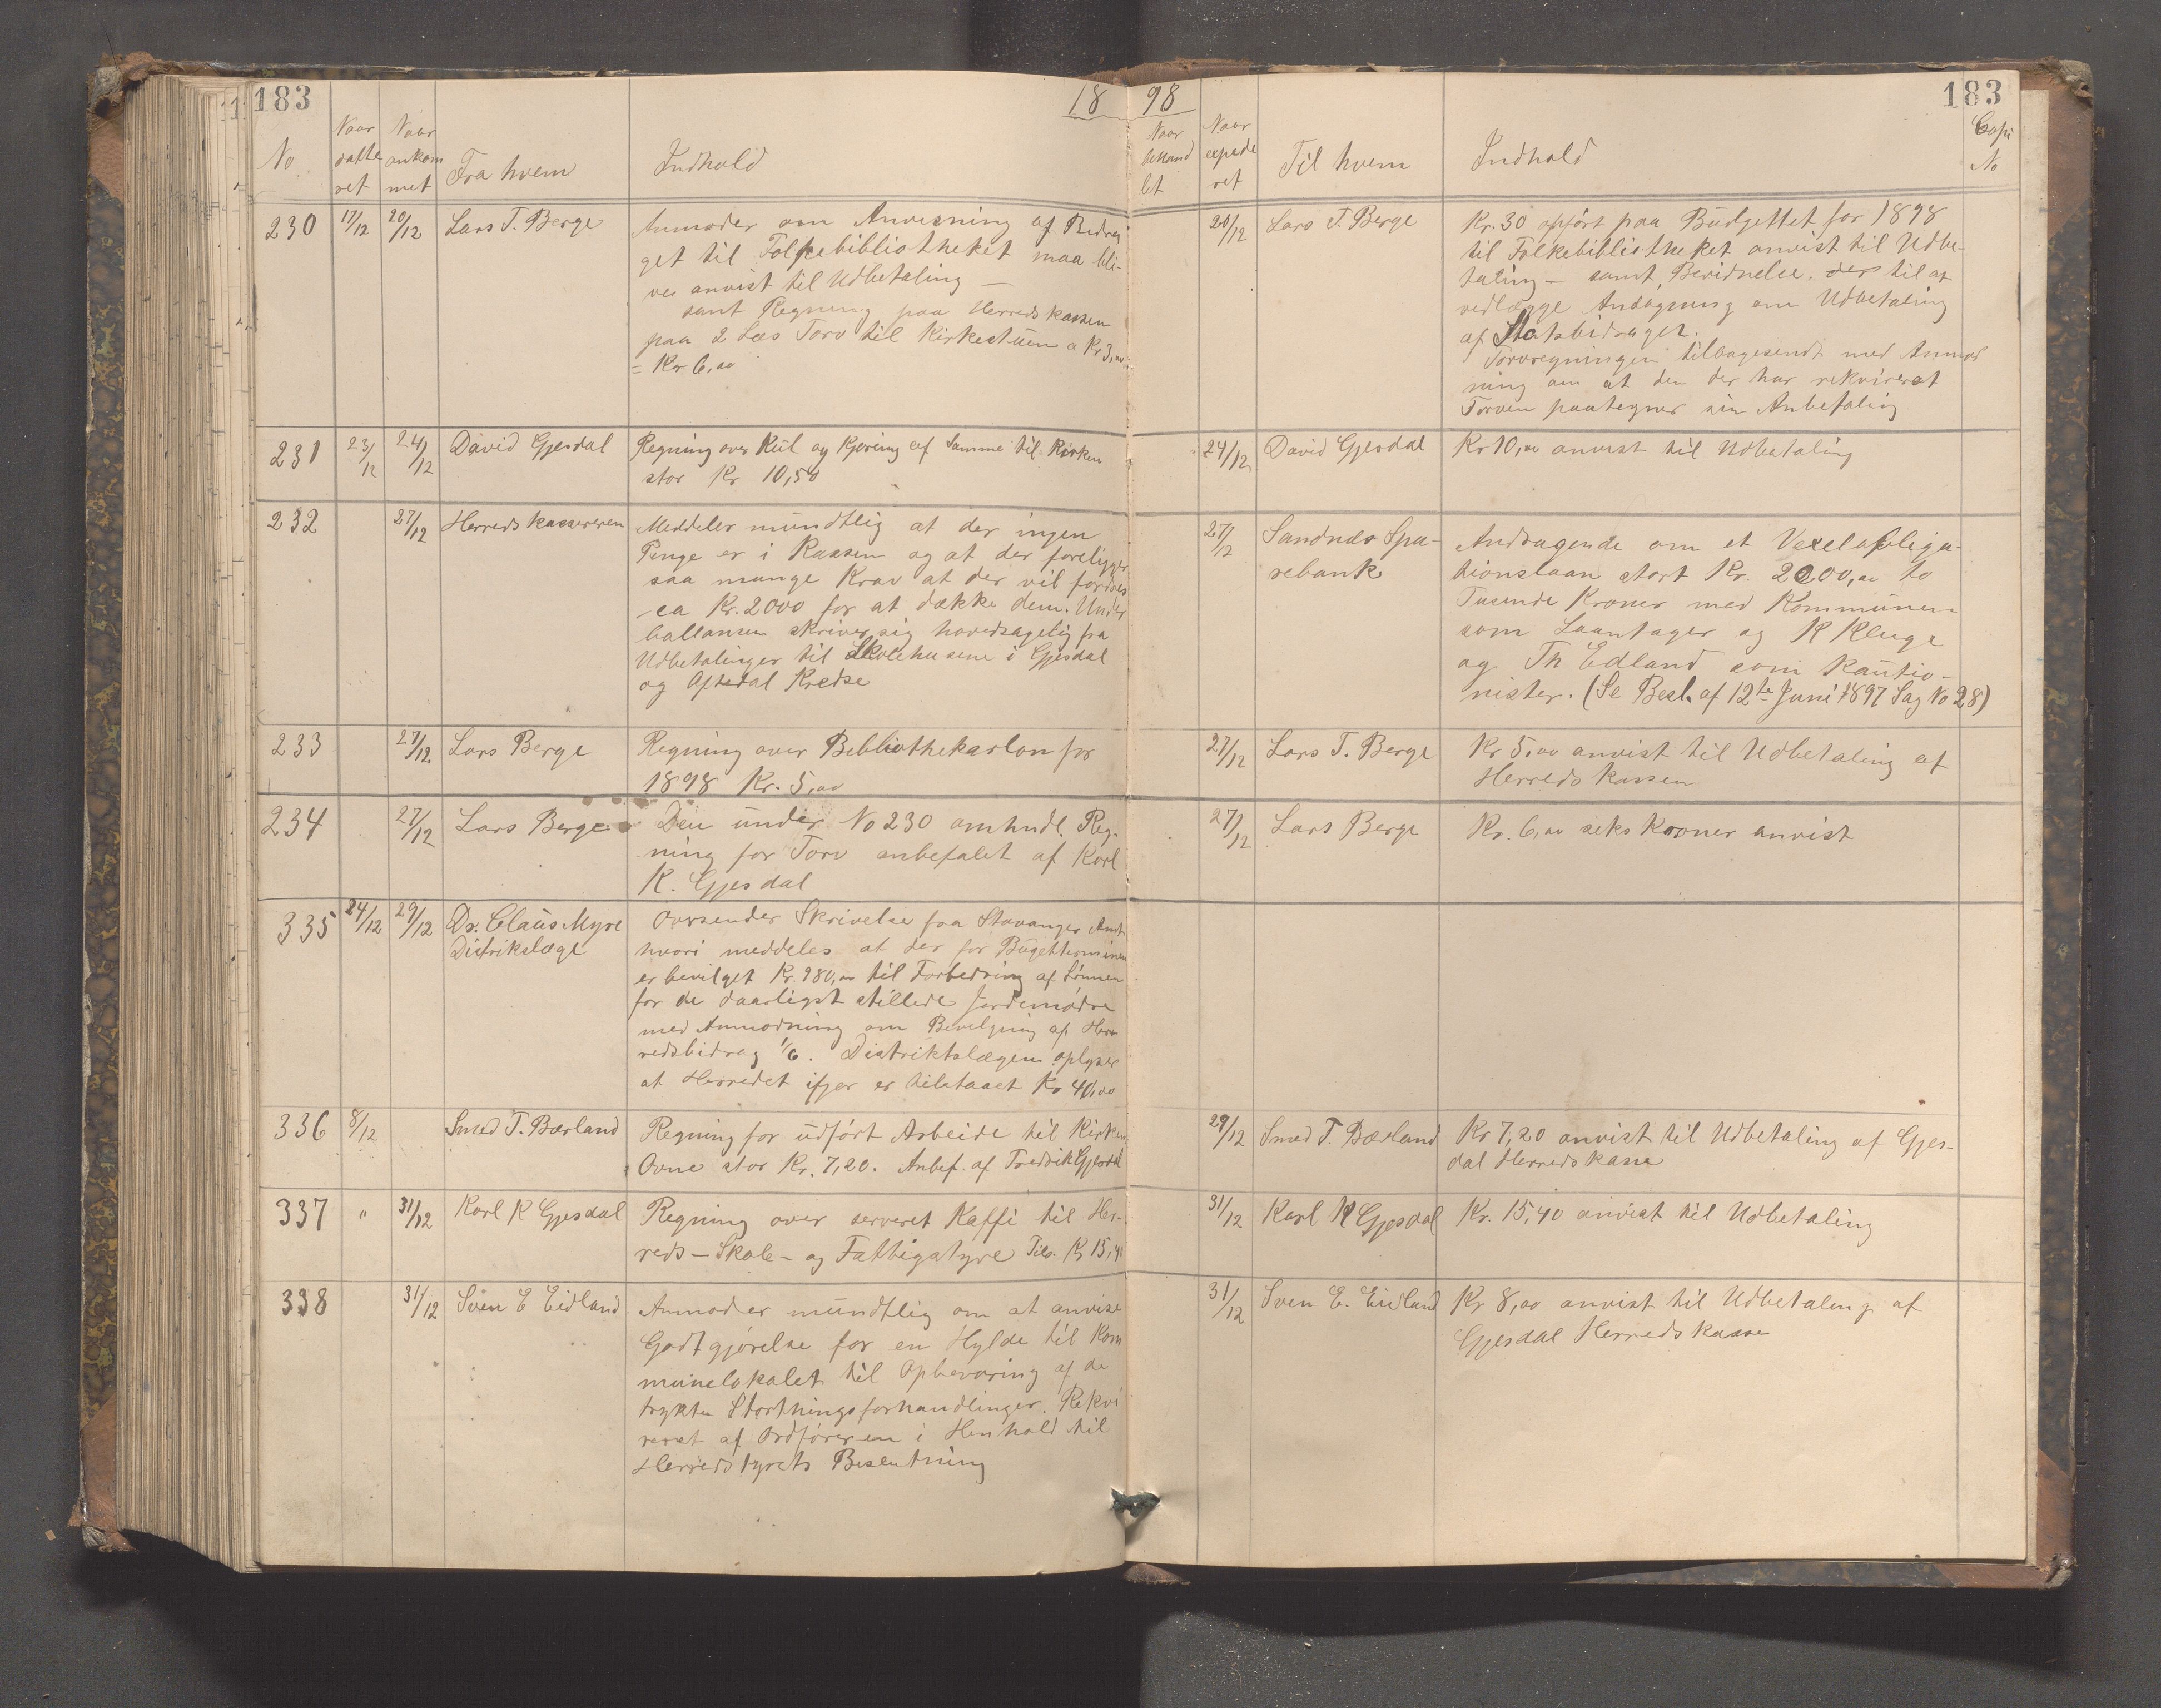 183
18
98
183
No
Naar
datte
ret
Naar
ankom
met
Fra hvem
Indhold
Naar
behand
let
Naar
expede
ret
Til hvem
Indhold
Copi
No
230
17/12
20/12
Lars T. Berge
Anmoder om Anvisning af Bedra
get til Folkebibliotheket maa bli-
ve anvist til Udbetaling —
samt Regning paa Herredskassen
paa 2 Læs Torv til Kirkestuen a Kr 3,00
= Kr 6,00
20/12
Lars T. Berge
Kr. 30 opført paa Budgettet for 1898
til Folkebibliotheket anvist til Udbe-
taling — samt Bevidnelse der til at
vedlægge Andragning om Udbetaling
af Statsbidraget.
Torvregningen tilbagesendt med Anmod
ning om at den der har rekvireret
Torven paategner sin Anbefaling
231
23/12
24/12
David Gjesdal
Regning over Kul og Kjøring af Samme til Kirken
stor Kr 10,50
24/12
David Gjesdal
Kr 10,00 anvist til Udbetaling
232
27/12
Herredskassereren
Meddeler mundtlig at der ingen
Penge er i Kassen og at der foreligger
saa mange Krav at der vil fordres
ca Kr. 2000 for at dække dem. Under
ballansen skriver sig hovedsagelig fra
Udbetalinger til Skolehusene i Gjesdal
og Oftedal Kredse
27/12
Sandnes Spa-
rebank
Andragende om et Vexelobliga-
tionslaan stort Kr. 2000,00 to
Tusende Kroner med Kommunen
som Laantager og K Kluge
og Th Edland som Kautio-
nister. (Se Besl. af 12te Juni 1897 Sag No 28)
233
27/12
Lars Berge
Regning over Bibliothekarløn for
1898 Kr. 5,00
27/12
Lars T. Berge
Kr 5,00 anvist til Udbetaling af
Herredskassen
234
27/12
Lars Berge
Den under No 230 omhndl. Reg-
ning for Torv anbefalet af Karl
K. Gjesdal
27/12
Lars Berge
Kr. 6,00 seks Kroner anvist
335
24/12
29/12
Dr. Claus Myre
Distrikslæge
Oversender Skrivelse fra Stavanger Amt
hvori meddeles at der for Bugetterminen
er bevilget Kr. 980,00 til Forbedring af Lønnen
for de daarligst stillede Jordemødre
med Anmodning om Bevilgning af Her-
redsbidrag 1/6. Distriktslægen oplyser
at Herredet ifjor er tilstaaet Kr 40,00
336
8/12
Smed T. Bærland
Regning for udført Arbeide til Kirken
Ovne stor Kr. 7,20. Anbef. af Fredrik Gjesdal
29/12
Smed T. Bærland
Kr 7,20 anvist til Udbetaling af Gjes-
dal Herredskasse
337
"
31/12
Karl K Gjesdal
Regning over serveret Kaffi til Her-
reds- Skole- og Fattigstyre Tils. Kr 15,40
31/12
Karl K Gjesdal
Kr. 15,40 anvist til Udbetaling
338
31/12
Sven E Eidland
Anmoder mundtlig om at anvise
Godtgjørelse for en Hylde til Kom
munelokalet til Opbevaring af de
trykte Storthingsforhandlinger. Rekvi
reret af Ordføreren i Henhold til
Herredstyrets Beslutning
31/12
Sven E. Eidland
Kr 8,00 anvist til Udbetaling af
Gjesdal Herredskasse